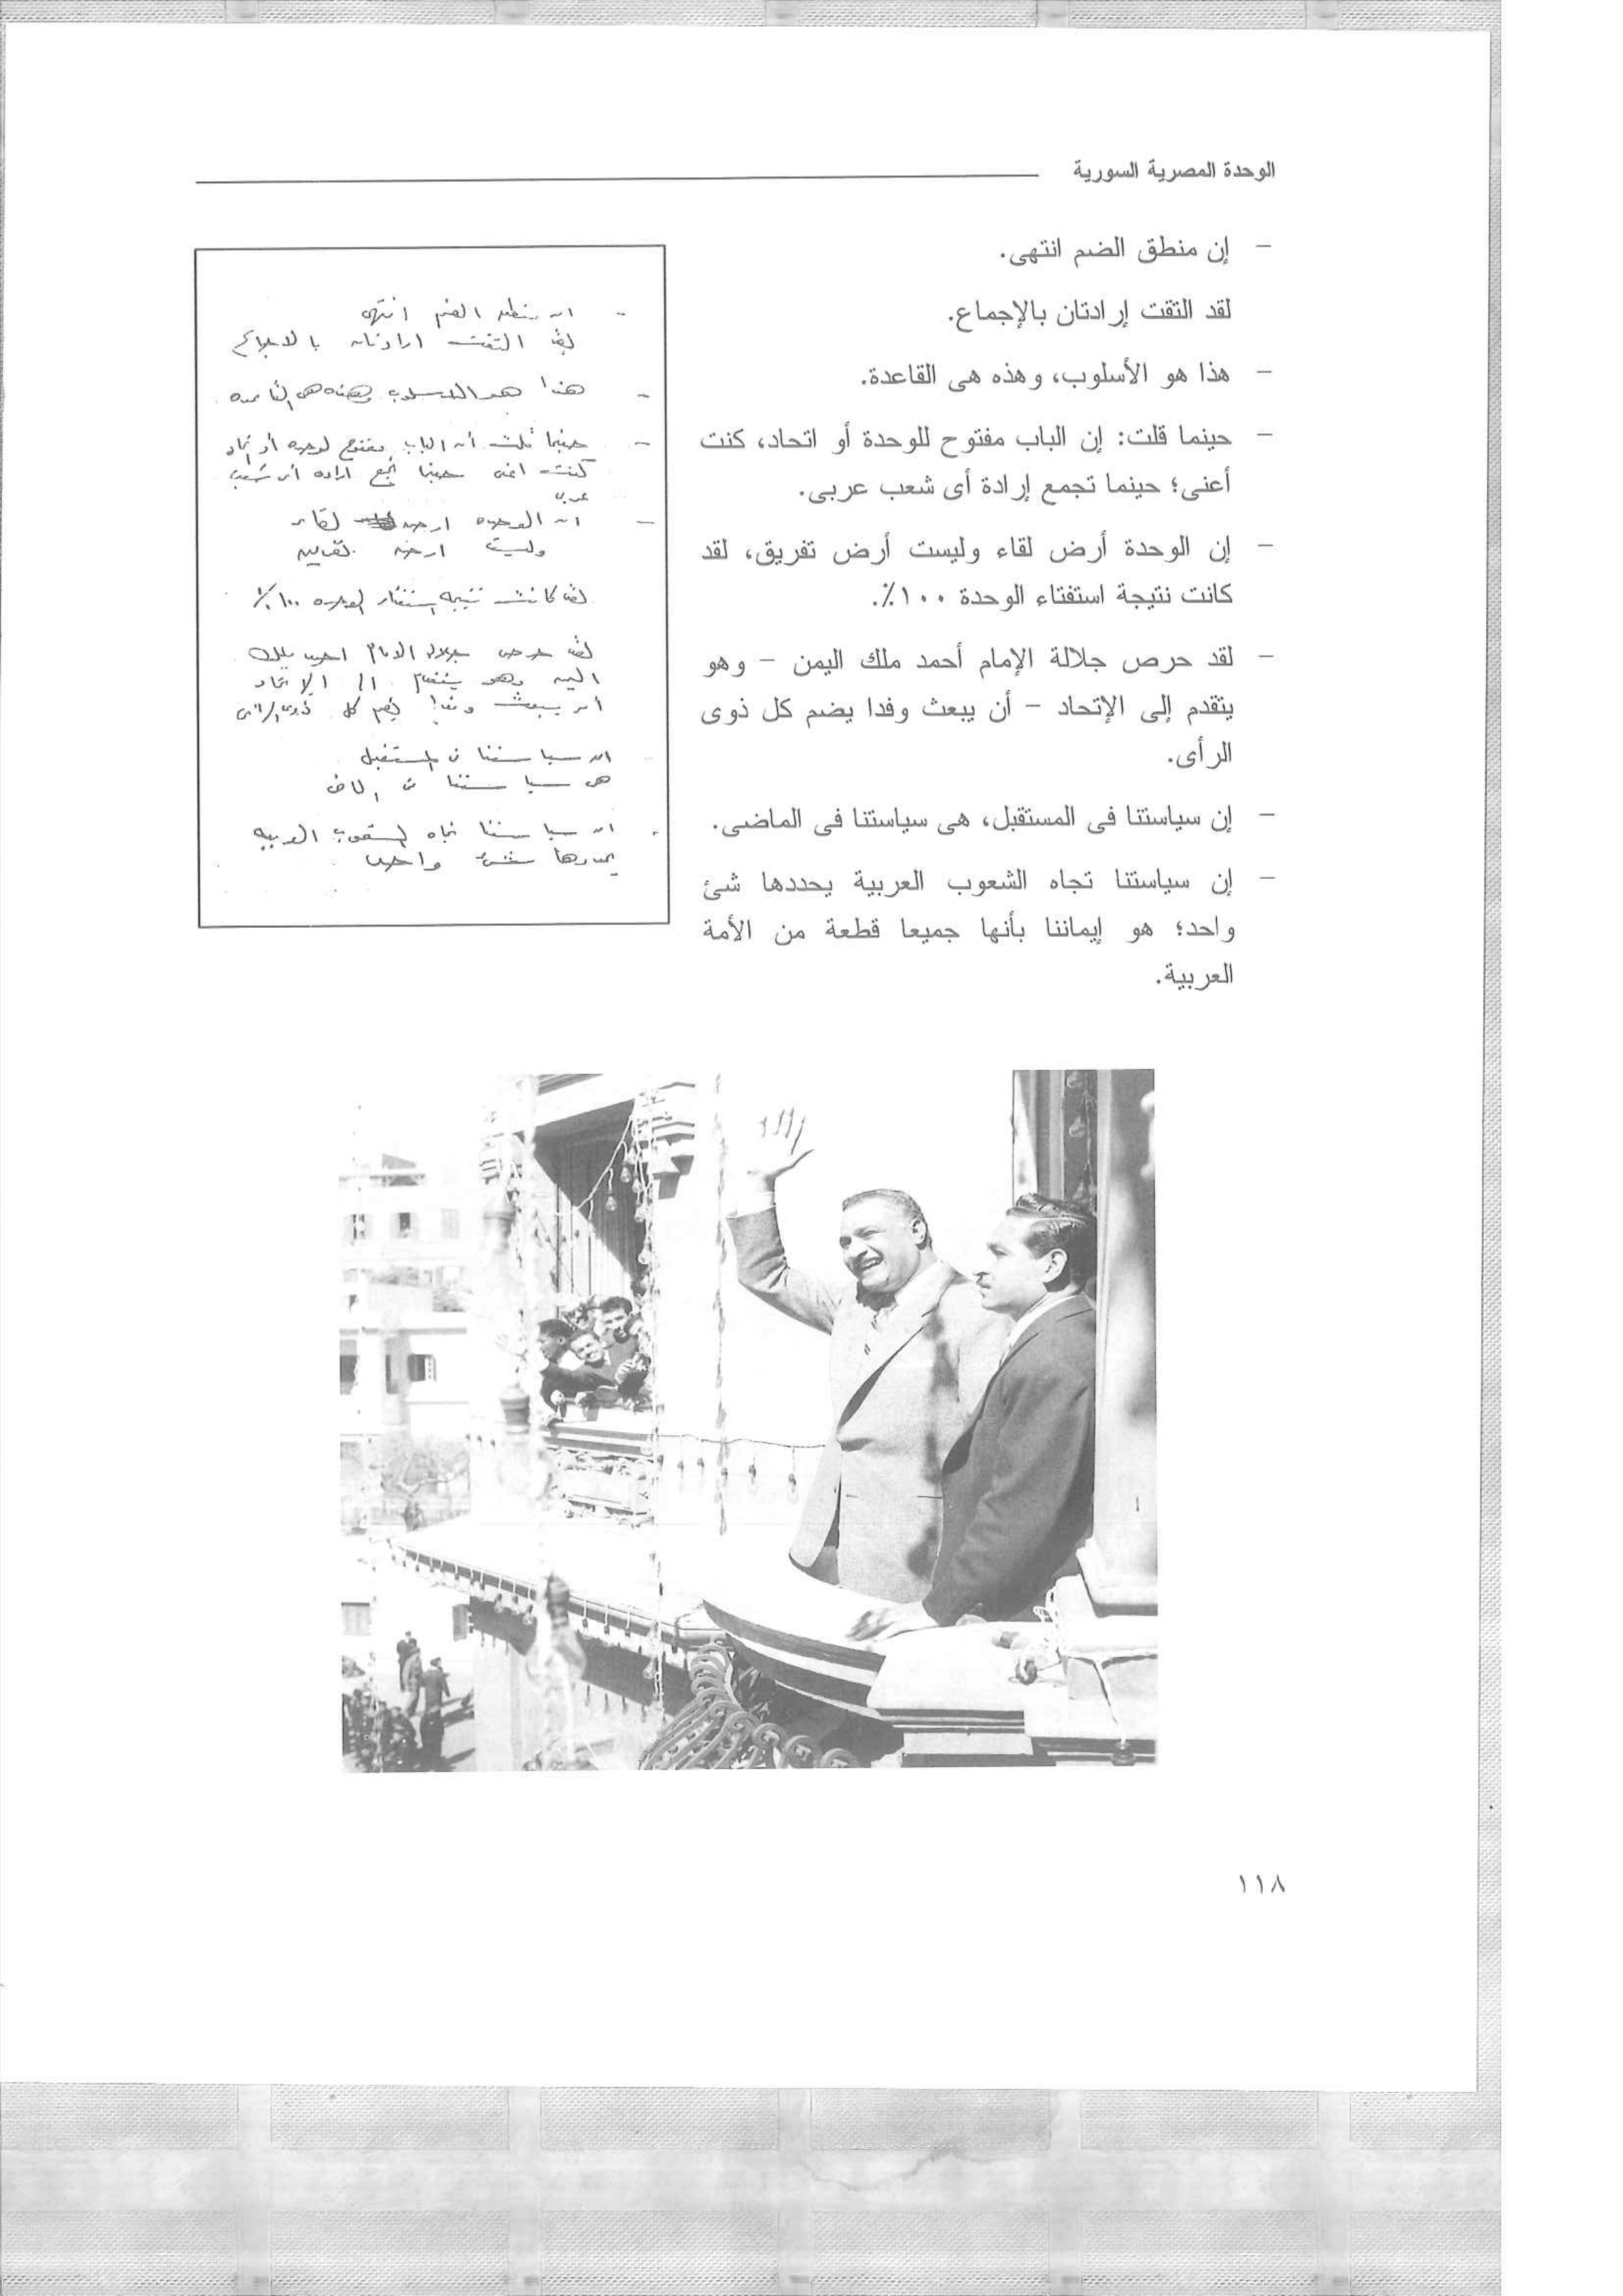 الوحدة المصرية السورية
– إن منطق الضم انتهى.
لقد التقت إرادتان بالإجماع.
– هذا هو الأسلوب، وهذه هى القاعدة.
– حينما قلت: إن الباب مفتوح للوحدة أو اتحاد، كنت
أعنى؛ حينما تجمع إرادة أى شعب عربى.
– إن الوحدة أرض لقاء وليست أرض تفريق، لقد
كانت نتيجة استفتاء الوحدة ١٠٠٪.
– لقد حرص جلالة الإمام أحمد ملك اليمن – وهو
يتقدم إلى الإتحاد – أن يبعث وفدا يضم كل ذوى
الرأى.
– إن سياستنا فى المستقبل، هى سياستنا فى الماضى.
– إن سياستنا تجاه الشعوب العربية يحددها شئ
واحد؛ هو إيماننا بأنها جميعا قطعة من الأمة
العربية.
- ان منطق الضم انتهى
لقد التقت ارادتان بالاجماع
- هذا هو الاسلوب وهذه هى القاعده
- حينما قلت أن الباب مفتوح لوحده أو اتحاد
كنت اعنى حينما تجمع اراده أى شعب
عربى
- ان الوحده ارض لقاء
وليست ارض تفريق
لقد كانت نتيجه استفتاء الوحده ١٠٠٪
لقد حرص جلالة الامام احمد ملك
اليمن وهو يتقدم الى الاتحاد
أن يبعث وفدا يضم كل ذوى الرأى
ان سياستنا فى المستقبل
هى سياستنا فى الماضى
- ان سياستنا تجاه الشعوب العربيه
يحددها شئ واحد
١١٨